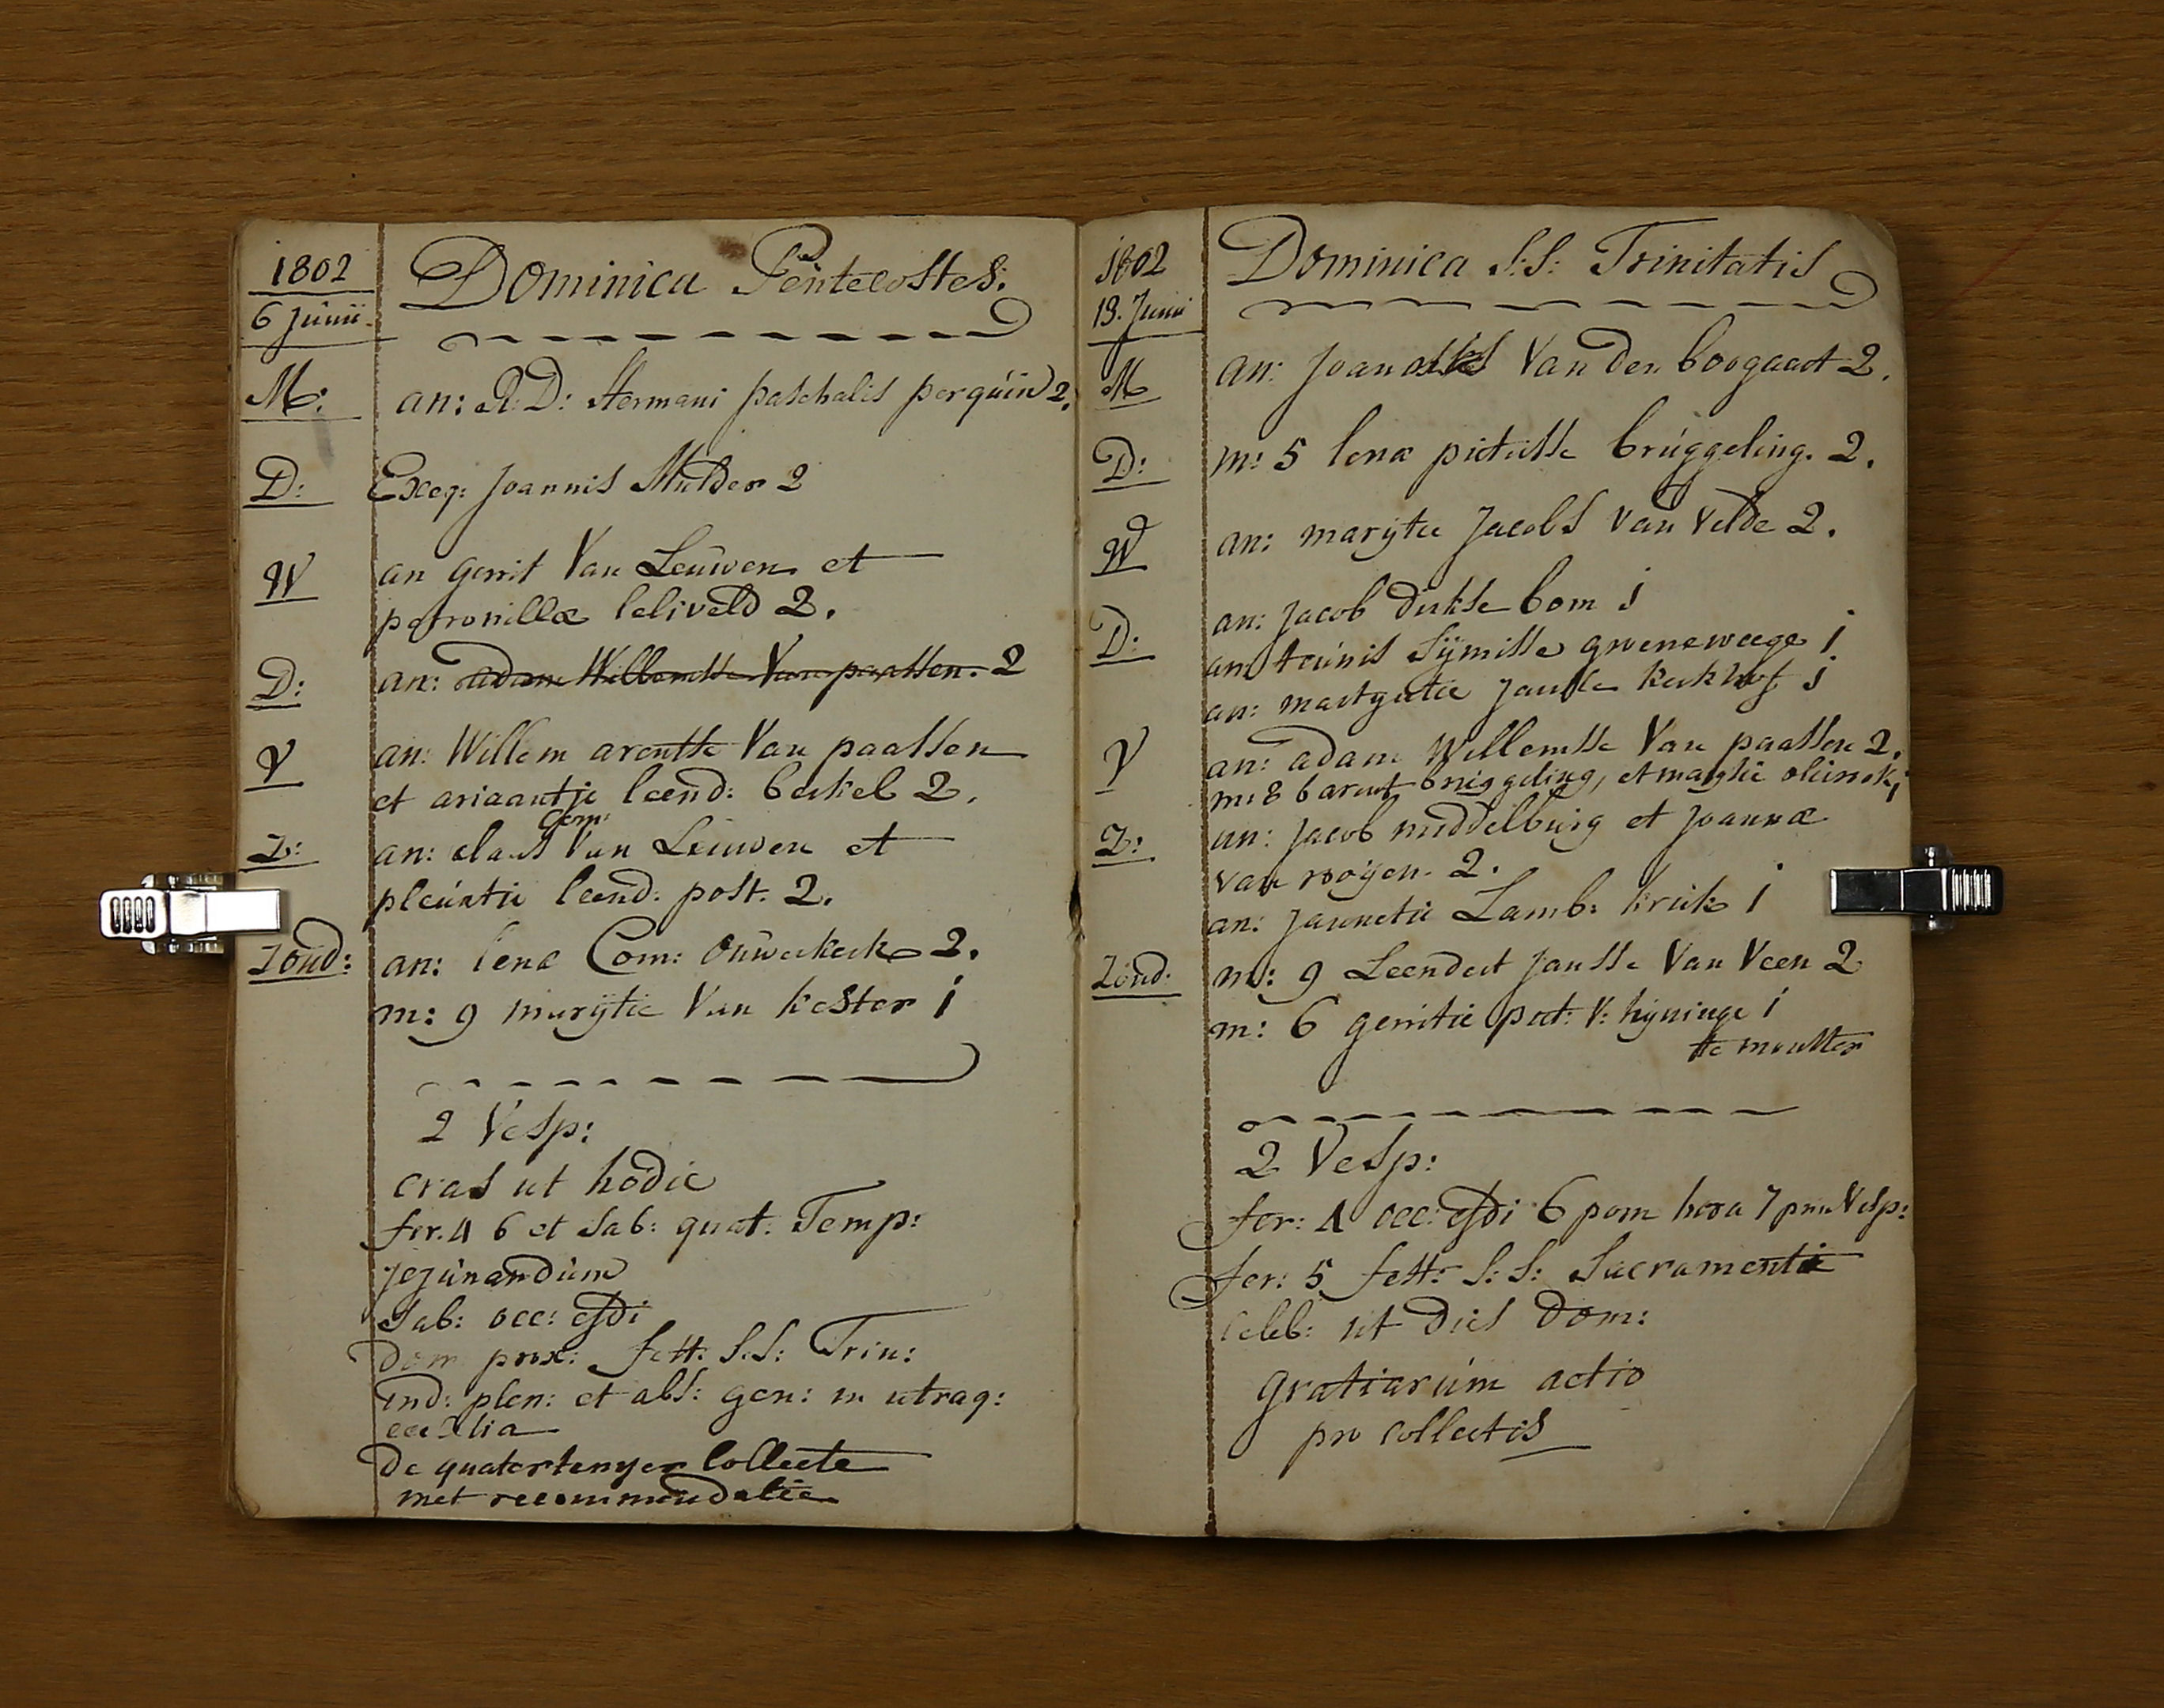 1802
6 Junii
Dominica Pentecostes:
M: an: R: D: Hermani paschalis perquin 2.
D: Exeq: Joannis Mulder 2
W an gerrit Van Leuwen et
petronillæ leliveld 2.
D: an: adam Willemsse Van paassen. 2
V an: Willem arentse Van paassen
et ariaantje leend: berkel 2.
Corn:
Z: an: claas Van Leuwen et
pleuntie leend: post. 2.
Zond: an: lena Corn: ouwerkerk 2.
m: 9 marijtie Van kester i
2 Vesp:
cras ut hodie
fer. 4 6 et Sab: quat: Temp:
jejunandum
Sab: occ: csdi
Dom prox: fest: S.S: Trin:
ind: plen: et abs: gen: in utraq:
ecclia
De quatertemper Collecte
met recommendatie
1802
13. Junii
Dominica S:S: Trinitatis
M an: Joannis Van den boogaart 2.
D: m: 5 lenæ pieterse bruggeling. 2.
W an: marijtie Jacobs van Velde 2.
D: an: Jacob dirkse bom i
an teunis Sijmisse groeneweege i
an: martijntie Jansse kerkhof i
V an: adam Willemsse Van paassen 2.
m: 8 barent bruggeling, et marijtie olierok i
Z: an: Jacob middelburg et Joannæ
van roijen. 2.
an: Jannetie Lamb: kruik i
Zond: m: 9 Leendert Jansse Van Veen 2
m: 6 gerritie piet: V: hijninge i
te monster
2 Vesp:
fer: 4 occ: csdi 6 pom hora 7 prim Vesp:
fer: 5 fest: S:S: Sacramenti
celeb: ut dies Dom:
gratiarum actio
pro collectis